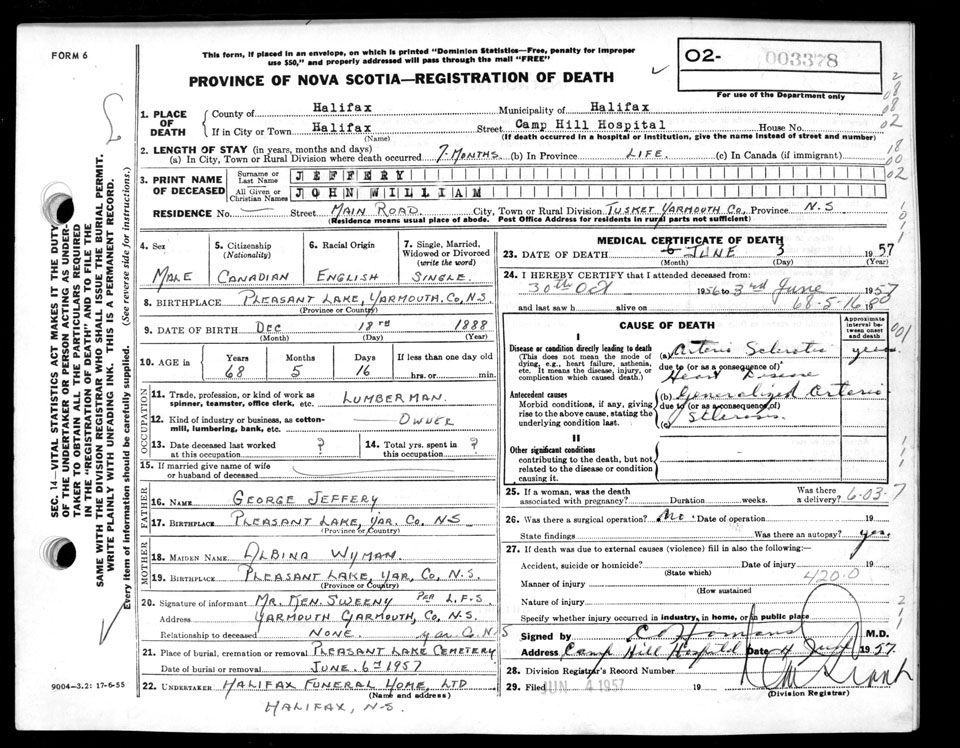 FORM 6
This form, if placed in an envelope, on which is printed "Dominion Statistics—Free, penalty for improper
use $50," and properly addressed will pass through the mail "FREE"
PROVINCE OF NOVA SCOTIA—REGISTRATION OF DEATH
02- 003378
For use of the Department only
1. PLACE OF DEATH
County of Halifax Municipality of Halifax
If in City or Town Halifax Street Camp Hill Hospital House No.
(Name) (If death occurred in a hospital or institution, give the name instead of street and number)
2. LENGTH OF STAY (in years, months and days)
(a) In City, Town or Rural Division where death occurred 7 MONTHS (b) In Province LIFE. (c) In Canada (if immigrant)
3. PRINT NAME OF DECEASED
Surname or Last Name JEFFERY
All Given or Christian Names JOHN WILLIAM
RESIDENCE No. — Street MAIN ROAD City, Town or Rural Division TUSKET YARMOUTH Co, Province N.S
(Residence means usual place of abode. Post Office Address for residents in rural parts not sufficient)
4. Sex MALE
5. Citizenship (Nationality) CANADIAN
6. Racial Origin ENGLISH
7. Single, Married, Widowed or Divorced (write the word) SINGLE.
8. BIRTHPLACE PLEASANT LAKE, YARMOUTH, Co, N.S
(Province or Country)
9. DATE OF BIRTH DEC 18TH 1888
(Month) (Day) (Year)
10. AGE in Years 68 Months 5 Days 16 If less than one day old
hrs. or min.
OCCUPATION
11. Trade, profession, or kind of work as
spinner, teamster, office clerk, etc. LUMBERMAN.
12. Kind of industry or business, as cotton-
mill, lumbering, bank, etc. OWNER
13. Date deceased last worked
at this occupation ?
14. Total yrs. spent in
this occupation ?
15. If married give name of wife
or husband of deceased
FATHER
16. NAME GEORGE JEFFERY
17. BIRTHPLACE PLEASANT LAKE, YAR. Co. NS
(Province or Country)
MOTHER
18. MAIDEN NAME ALBINA WYMAN.
19. BIRTHPLACE PLEASANT LAKE, YAR, Co, N.S.
(Province or Country)
20. Signature of informant MR. KEN. SWEENY PER L.F.S
Address YARMOUTH YARMOUTH, Co, N.S.
Relationship to deceased NONE. yar. Co. N S
21. Place of burial, cremation or removal PLEASANT LAKE CEMETERY
Date of burial or removal JUNE. 6TH 1957
22. UNDERTAKER HALIFAX FUNERAL HOME, LTD
(Name and address)
HALIFAX, N.S.
MEDICAL CERTIFICATE OF DEATH
23. DATE OF DEATH 6 JUNE 3 1957
(Month) (Day) (Year)
24. I HEREBY CERTIFY that I attended deceased from:
30th Oct 1956 to 3rd June 1957
and last saw h alive on 19
68-5-16
CAUSE OF DEATH
Approximate interval between onset and death
I
Disease or condition directly leading to death
(This does not mean the mode of
dying, e.g., heart failure, asthenia,
etc. It means the disease, injury, or
complication which caused death.)
(a) Arterio Sclerotic years
due to (or as a consequence of)
Heart Disease
Antecedent causes
Morbid conditions, if any, giving
rise to the above cause, stating the
underlying condition last.
(b) Generalized Arterio
due to (or as a consequence of)
Sclerosis.
(c)
II
Other significant conditions
contributing to the death, but not
related to the disease or condition
causing it.
25. If a woman, was the death
associated with pregnancy? Duration weeks. Was there a delivery?
6-03-7
26. Was there a surgical operation? No. Date of operation 19
State findings Was there an autopsy? yes
27. If death was due to external causes (violence) fill in also the following:—
Accident, suicide or homicide? Date of injury 19
(State which)
420.0
Manner of injury
(How sustained)
Nature of injury
Specify whether injury occurred in industry, in home, or in public place
Signed by M.D.
Address Camp Hill Hospital Date 4 June 1957.
28. Division Registrar's Record Number
29. Filed JUN 4 1957 19
(Division Registrar)
SEC. 14—VITAL STATISTICS ACT MAKES IT THE DUTY
OF THE UNDERTAKER OR PERSON ACTING AS UNDER-
TAKER TO OBTAIN ALL THE PARTICULARS REQUIRED
IN THE "REGISTRATION OF DEATH" AND TO FILE THE
SAME WITH THE DIVISION REGISTRAR WHO SHALL ISSUE THE BURIAL PERMIT.
WRITE PLAINLY WITH UNFADING INK. THIS IS A PERMANENT RECORD.
Every item of information should be carefully supplied. (See reverse side for instructions.)
9004-3.2: 17-6-55